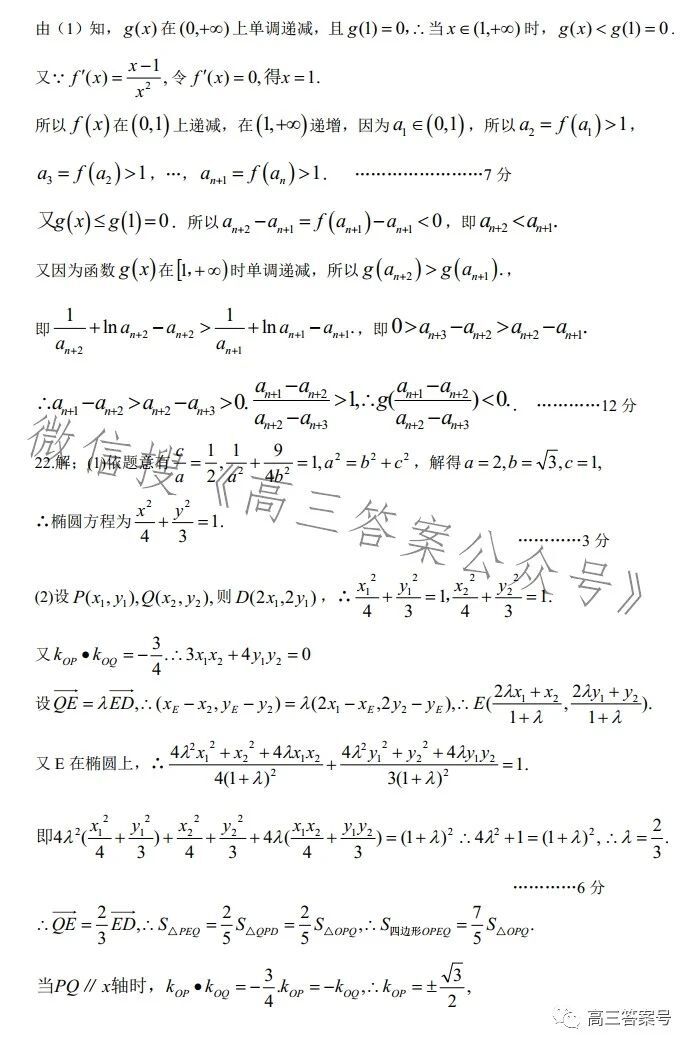 由（1）知，g(x)在(0,+∞)上单调递减，且g(1)=0,∴当x∈(1,+∞)时，g(x)<g(1)=0.
又∵f′(x)=\frac{x-1}{x^2},令f′(x)=0,得x=1.
所以f(x)在(0,1)上递减，在(1,+∞)递增，因为a_1∈(0,1)，所以a_2=f(a_1)>1，
a_3=f(a_2)>1，…，a_{n+1}=f(a_n)>1. ……………………7分
又g(x)≤g(1)=0．所以a_{n+2}-a_{n+1}=f(a_{n+1})-a_{n+1}<0，即a_{n+2}<a_{n+1}.
又因为函数g(x)在[1,+∞)时单调递减，所以g(a_{n+2})>g(a_{n+1}).，
即\frac{1}{a_{n+2}}+ln a_{n+2}-a_{n+2}>\frac{1}{a_{n+1}}+ln a_{n+1}-a_{n+1}.，即0>a_{n+3}-a_{n+2}>a_{n+2}-a_{n+1}.
∴a_{n+1}-a_{n+2}>a_{n+2}-a_{n+3}>0.\frac{a_{n+1}-a_{n+2}}{a_{n+2}-a_{n+3}}>1,∴g(\frac{a_{n+1}-a_{n+2}}{a_{n+2}-a_{n+3}})<0.． …………12分
22.解；(1)依题意有\frac{c}{a}=\frac{1}{2},\frac{1}{a^2}+\frac{9}{4b^2}=1,a^2=b^2+c^2，解得a=2,b=\sqrt{3},c=1,
∴椭圆方程为\frac{x^2}{4}+\frac{y^2}{3}=1.
…………3分
(2)设P(x_1,y_1),Q(x_2,y_2),则D(2x_1,2y_1)，∴\frac{x_1^2}{4}+\frac{y_1^2}{3}=1,\frac{x_2^2}{4}+\frac{y_2^2}{3}=1.
又k_{OP}•k_{OQ}=-\frac{3}{4}.∴3x_1x_2+4y_1y_2=0
设\overrightarrow{QE}=λ\overrightarrow{ED},∴(x_E-x_2,y_E-y_2)=λ(2x_1-x_E,2y_2-y_E),∴E(\frac{2λx_1+x_2}{1+λ},\frac{2λy_1+y_2}{1+λ}).
又E在椭圆上，∴\frac{4λ^2x_1^2+x_2^2+4λx_1x_2}{4(1+λ)^2}+\frac{4λ^2y_1^2+y_2^2+4λy_1y_2}{3(1+λ)^2}=1.
即4λ^2(\frac{x_1^2}{4}+\frac{y_1^2}{3})+\frac{x_2^2}{4}+\frac{y_2^2}{3}+4λ(\frac{x_1x_2}{4}+\frac{y_1y_2}{3})=(1+λ)^2∴4λ^2+1=(1+λ)^2,∴λ=\frac{2}{3}.
…………6分
∴\overrightarrow{QE}=\frac{2}{3}\overrightarrow{ED},∴S_{△PEQ}=\frac{2}{5}S_{△QPD}=\frac{2}{5}S_{△OPQ},∴S_{四边形OPEQ}=\frac{7}{5}S_{△OPQ}.
当PQ∥x轴时，k_{OP}•k_{OQ}=-\frac{3}{4}.k_{OP}=-k_{OQ},∴k_{OP}=±\frac{\sqrt{3}}{2},
微信搜《高三答案公众号》
高三答案号